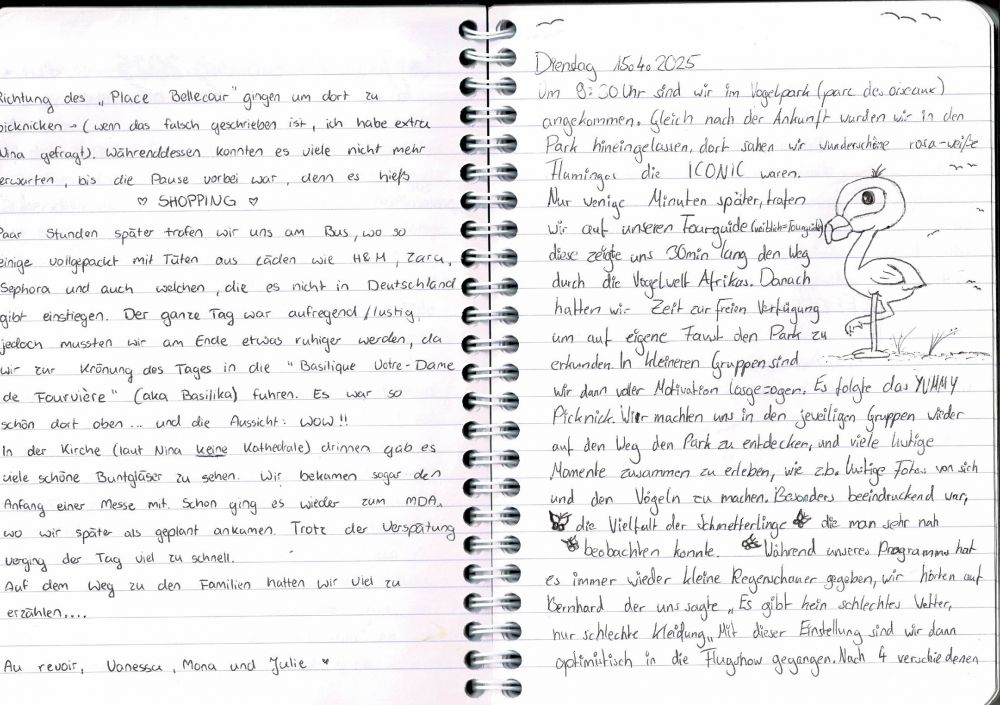 Richtung des „Place Bellecour" gingen um dort zu
picknicken → (wenn das falsch geschrieben ist, ich habe extra
Nina gefragt). Währenddessen konnten es viele nicht mehr
erwarten, bis die Pause vorbei war, denn es hieß
♡ SHOPPING ♡
Paar Stunden später trafen wir uns am Bus, wo so
einige vollgepackt mit Tüten aus Läden wie H&M, Zara,
Sephora und auch welchen, die es nicht in Deutschland
gibt einstiegen. Der ganze Tag war aufregend/lustig,
jedoch mussten wir am Ende etwas ruhiger werden, da
wir zur Krönung des Tages in die "Basilique Notre-Dame
de Fourvière" (aka Basilika) fuhren. Es war so
schön dort oben ... und die Aussicht: WOW!!
In der Kirche (laut Nina keine Kathedrale) drinnen gab es
viele schöne Buntgläser zu sehen. Wir bekamen sogar den
Anfang einer Messe mit. Schon ging es wieder zum MDA,
wo wir später als geplant ankamen. Trotz der Verspätung
verging der Tag viel zu schnell.
Auf dem Weg zu den Familien hatten wir viel zu
erzählen....
Au revoir, Vanessa, Mona und Julie ♥
Dienstag 15.4.2025
Um 9:30 Uhr sind wir im Vogelpark (parc des oiseaux)
angekommen. Gleich nach der Ankunft wurden wir in den
Park hineingelassen, dort sahen wir wunderschöne rosa-weiße
Flamingos die ICONIC waren.
Nur wenige Minuten später, trafen
wir auf unseren Tourguide (weiblich=Tourguide)
diese zeigte uns 30min lang den Weg
durch die Vogelwelt Afrikas. Danach
hatten wir Zeit zur freien Verfügung
um auf eigene Faust den Park zu
erkunden. In kleineren Gruppen sind
wir dann voller Motivation losgezogen. Es folgte das YUMMY
Picknick. Wir machten uns in den jeweiligen Gruppen wieder
auf den Weg den Park zu entdecken, und viele lustige
Momente zusammen zu erleben, wie z.b. lustige Fotos von sich
und den Vögeln zu machen. Besonders beeindruckend war,
die Vielfalt der Schmetterlinge die man sehr nah
beobachten konnte. Während unseres Programms hat
es immer wieder kleine Regenschauer gegeben, wir hörten auf
Bernhard der uns sagte „Es gibt kein schlechtes Wetter,
nur schlechte Kleidung„ Mit dieser Einstellung sind wir dann
optimistisch in die Flugshow gegangen. Nach 4 verschiedenen